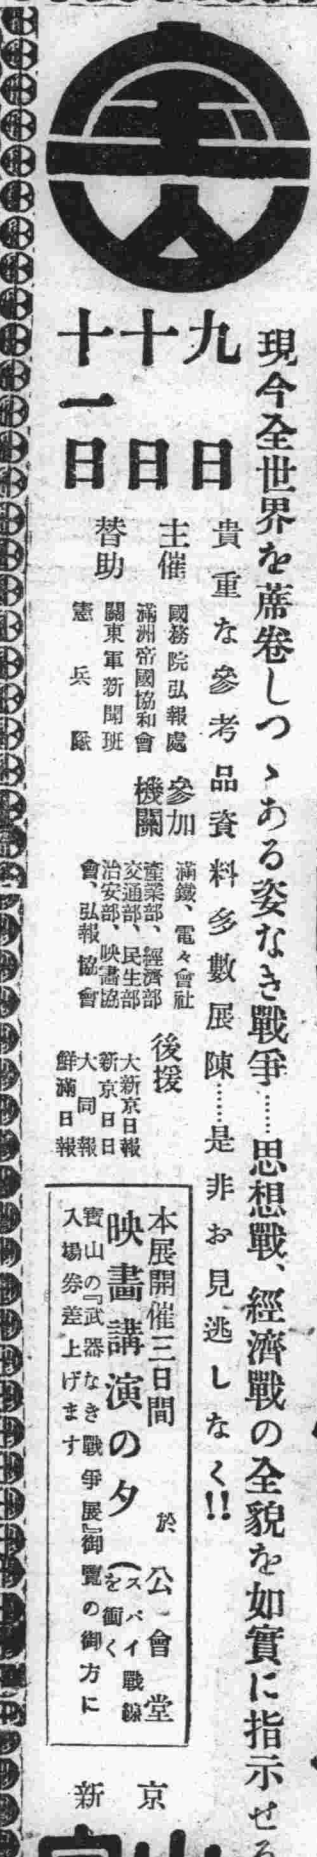 現今全世界を蓆卷しつゝある姿なき戰爭……思想戰、經濟戰の全貌を如實に指示せる
貴重な參考品資料多數展陳……是非お見逃しなく!!
九日
十日
十一日
主催
國務院弘報處
滿洲帝國協和會
替助
關東軍新聞班
憲兵隊
參加
機關
滿鐵、電々會社
產業部、經濟部
交通部、民生部
治安部、映畫協
會、弘報協會
後援
大新京日報
新京日日
大同報
鮮滿日報
本展開催三日間 於公會堂
映畫講演の夕(スパイ戰線を衝く
寶山の『武器なき戰爭展』御覽の御方に
入場券差上げます
京
新